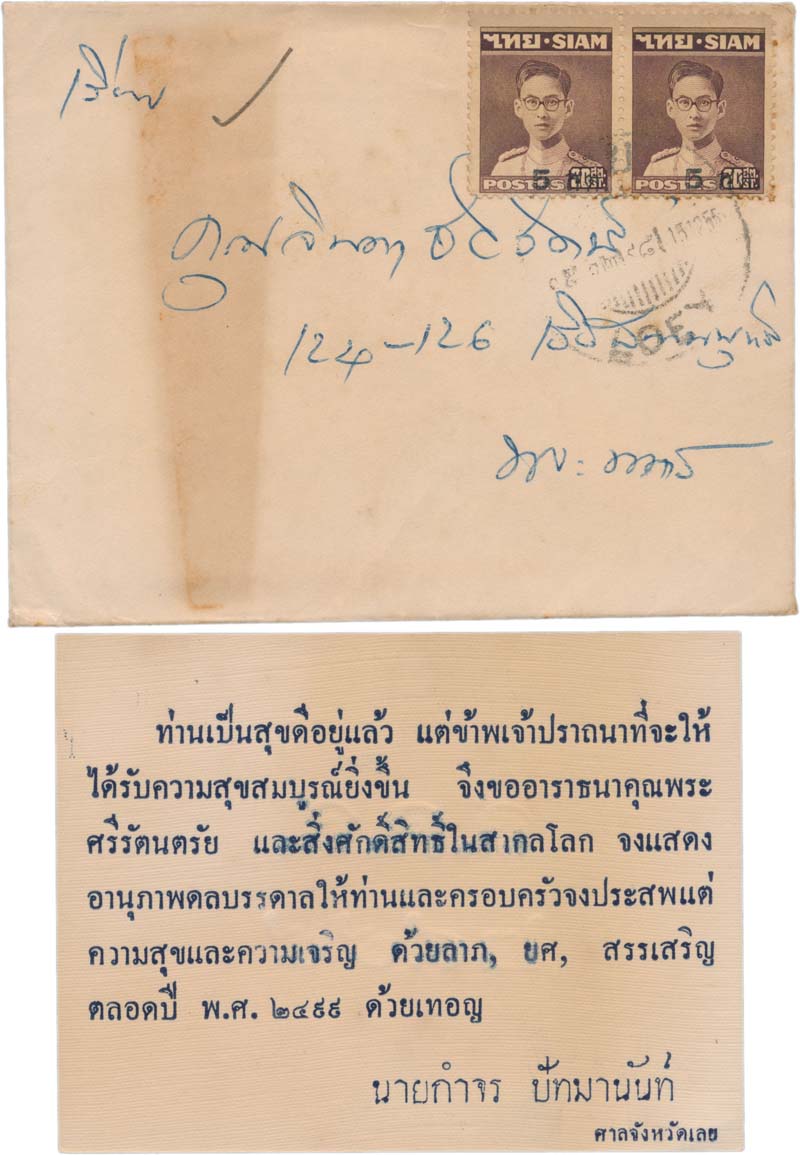 ไทย·SIAM ไทย·SIAM
POSTS 5 ส.ต. POSTS 5 ส.ต.
เรียน
คุณจินดา
LOEY
124-126
ท่านเป็นสุขดีอยู่แล้ว แต่ข้าพเจ้าปราถนาที่จะให้
ได้รับความสุขสมบูรณ์ยิ่งขึ้น จึงขออาราธนาคุณพระ
ศรีรัตนตรัย และสิ่งศักดิ์สิทธิ์ในสากลโลก จงแสดง
อานุภาพดลบรรดาลให้ท่านและครอบครัวจงประสพแต่
ความสุขและความเจริญ ด้วยลาภ, ยศ, สรรเสริญ
ตลอดปี พ.ศ. ๒๔๙๙ ด้วยเทอญ
นายกำจร ปัทมานันท์
ศาลจังหวัดเลย